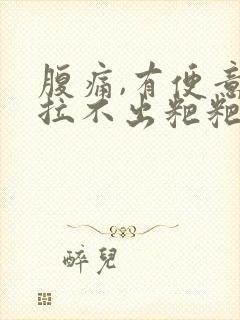 腹痛,有便意
拉不出粑粑
醉兒